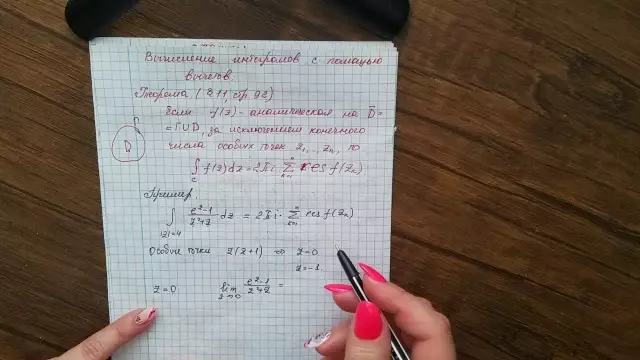 Вычисление интегралов с помощью
вычетов.
Теорема (§ 11, стр. 92)
Если f(z) - аналитическая на D̄ =
Γ
= Γ∪D, за исключением конечного
D
числа особых точек z₁, ..., zₙ, то
∫ f(z)dz = 2πi ∑ res f(zₖ)
C k=1 n
Пример.
∫ (e^z-1)/(z²+z) dz = 2πi · ∑ res f(zₖ)
|z|=4 k=1 n
Особые точки z(z+1) ⇒ z=0
z=-1
z=0 lim (e^z-1)/(z²+z) =
z→0